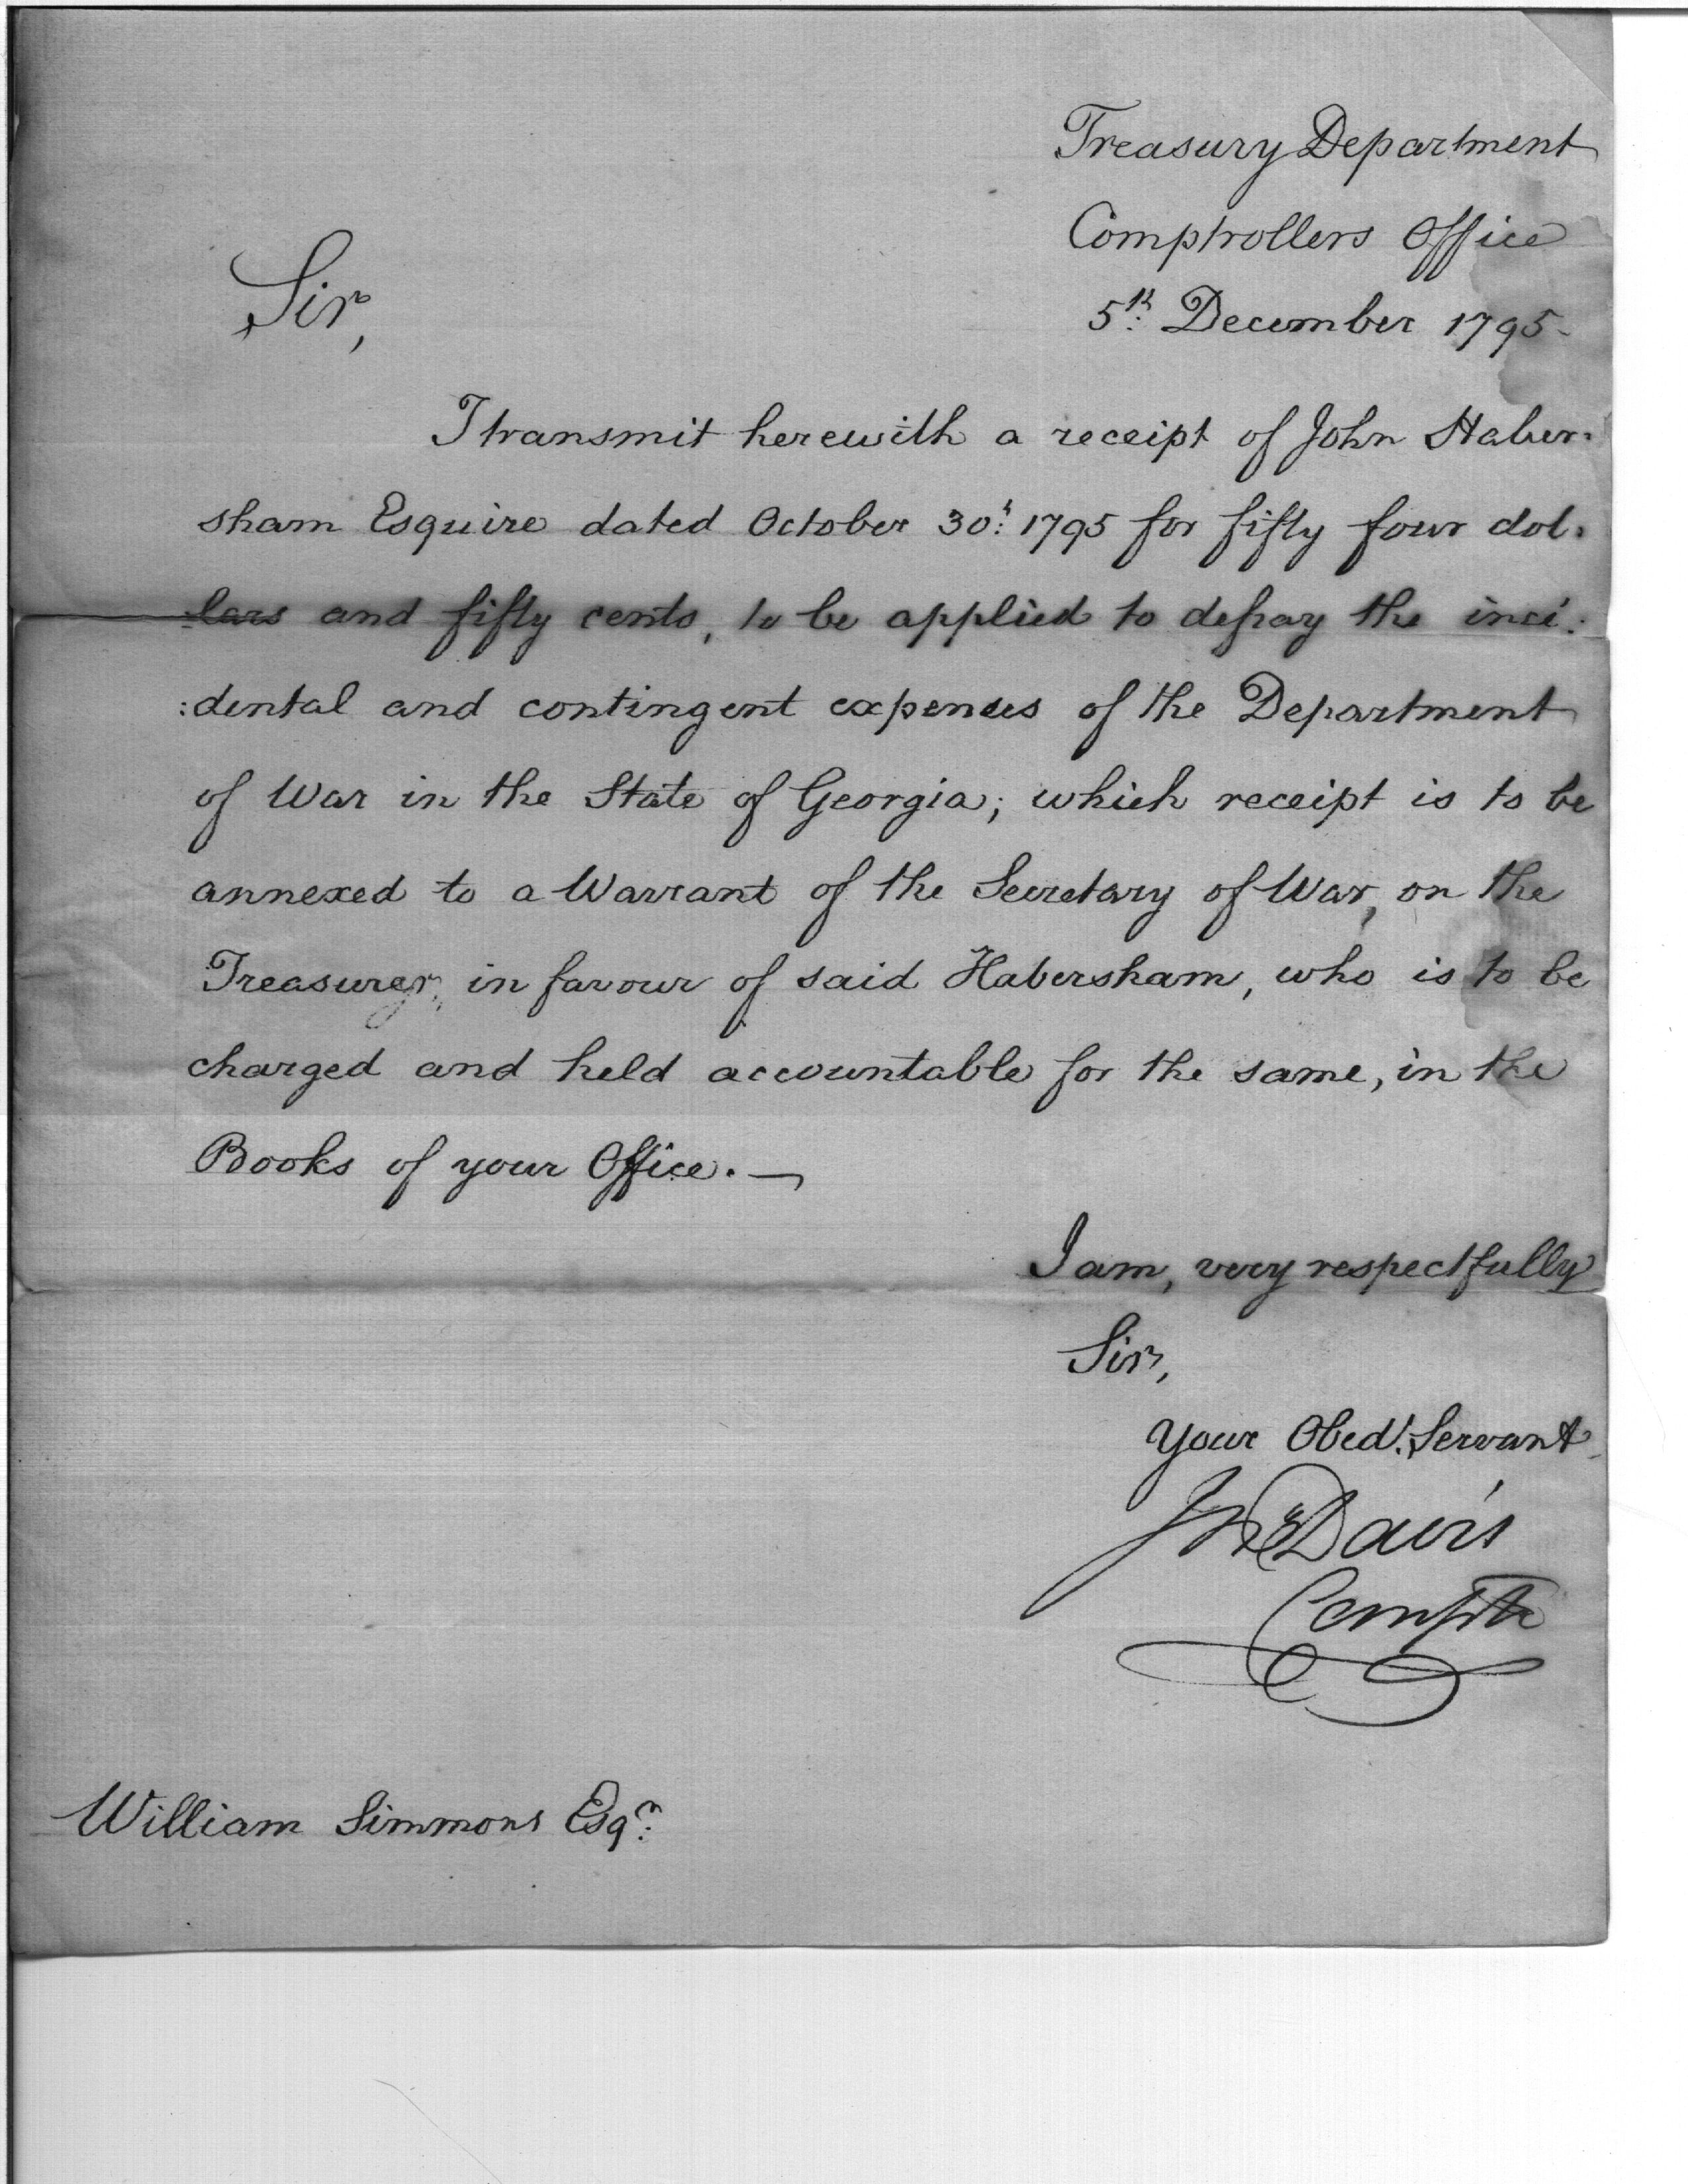 Treasury Department
Comptrollers Office
5th: December 1795.
Sir,
I transmit herewith a receipt of John Haber-
sham Esquire dated October 30th: 1795 for fifty four dol-
:lars and fifty cents, to be applied to defray the inci:
:dental and contingent expenses of the Department
of War in the State of Georgia; which receipt is to be
annexed to a Warrant of the Secretary of War, on the
Treasurer, in favour of said Habersham, who is to be
charged and held accountable for the same, in the
Books of your Office. —
I am, very respectfully
Sir,
your Obedt. Servant
Jno Davis
Comptr
William Simmons Esqr: